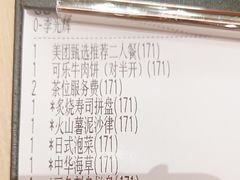 0-李光辉
1 美团甄选推荐二人餐(171)
1 可乐牛肉饼（对半开）(171)
2 茶位服务费(171)
1 *炙烧寿司拼盘(171)
1 *火山薯泥沙律(171)
1 *日式泡菜(171)
1 *中华海草(171)